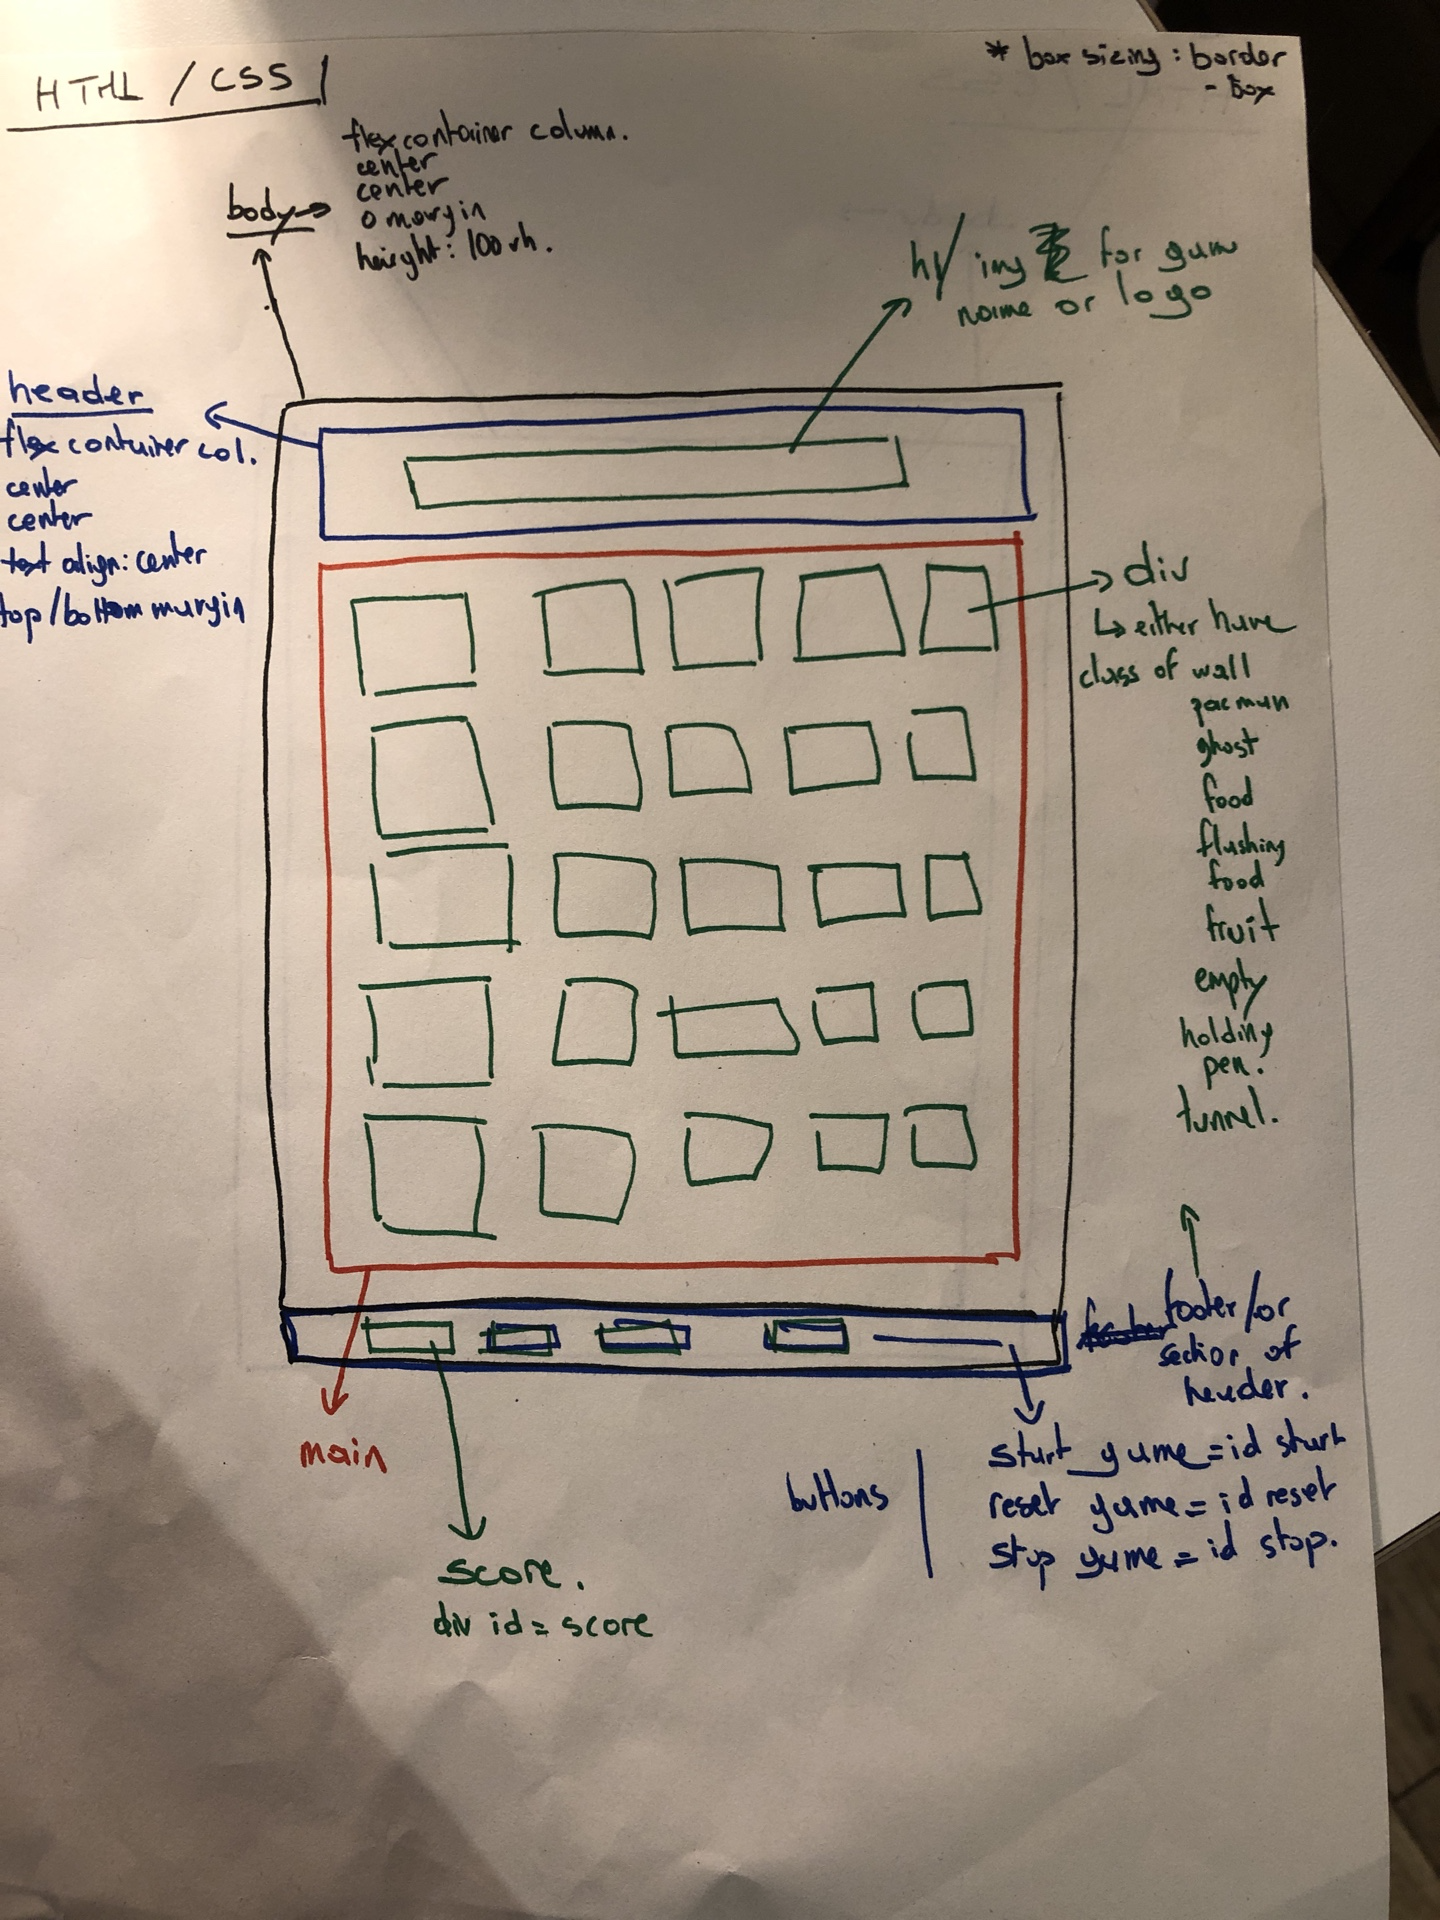 HTML / CSS
* box sizing : border
- box
flex container column.
center
center
0 margin
height: 100vh.
body
h1/ img for game
name or logo
header
flex container col.
center
center
text align: center
top/bottom margin
div
↳ either have
class of wall
pacman
ghost
food
flashing
food
fruit
empty
holding
pen.
tunnel.
footer/or
section of
header.
main
buttons
start game = id start
reset game = id reset
stop game = id stop.
score.
div id = score